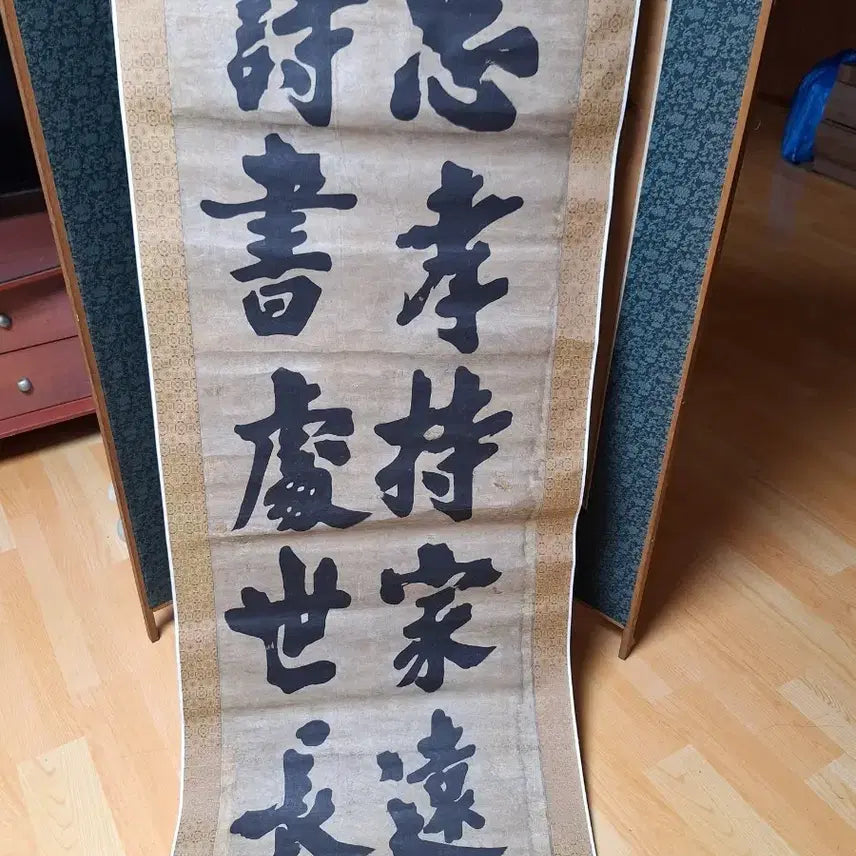 忠孝持家遠
詩書處世長